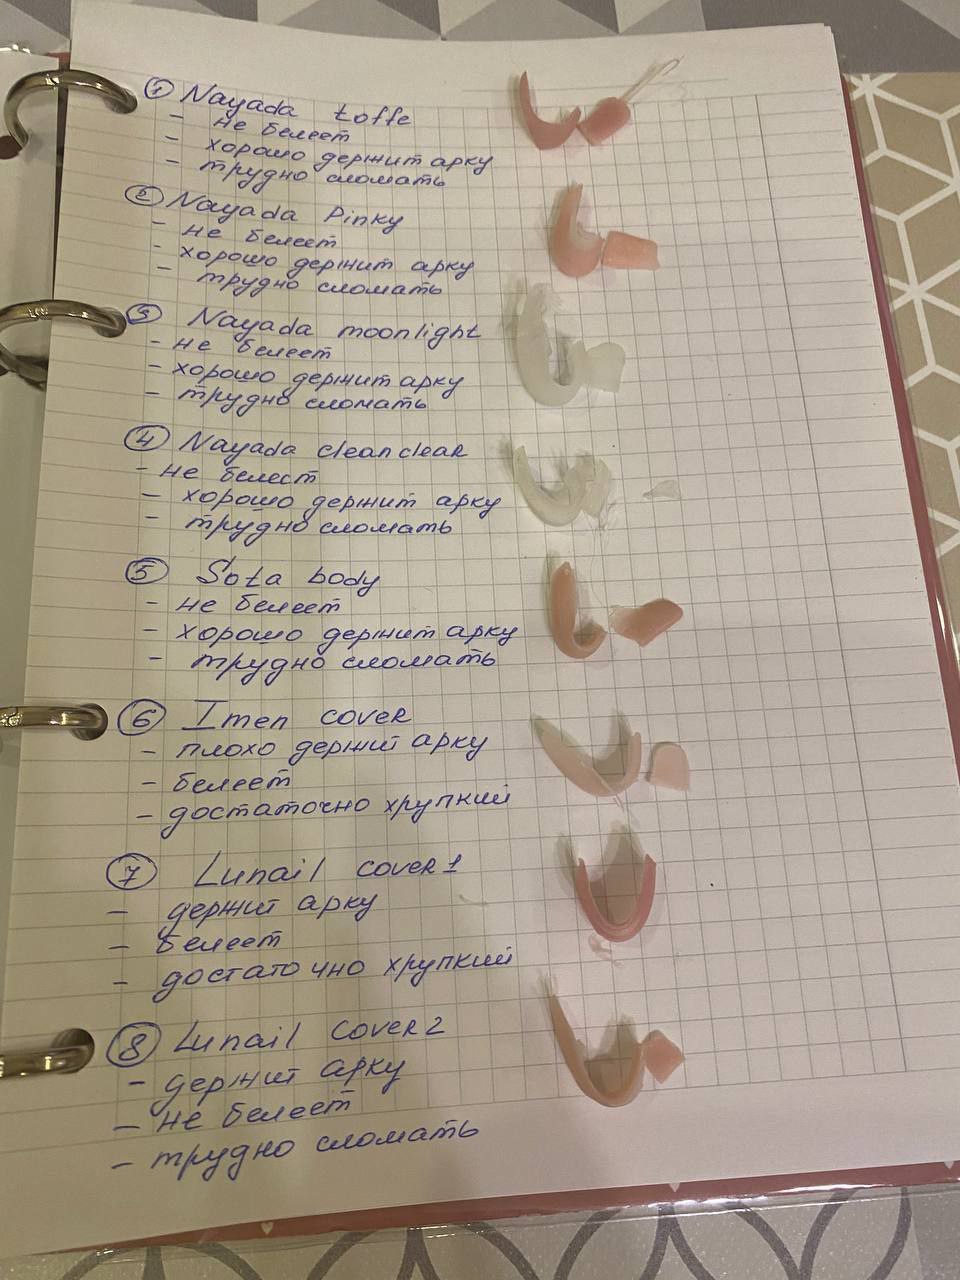 ① Nayada toffe
- не белеет
- хорошо держит арку
- трудно сломать
② Nayada Pinky
- не белеет
- хорошо держит арку
- трудно сломать
③ Nayada moonlight
- не белеет
- хорошо держит арку
- трудно сломать
④ Nayada clean clear
- не белеет
- хорошо держит арку
- трудно сломать
⑤ Sota body
- не белеет
- хорошо держит арку
- трудно сломать
⑥ Imen cover
- плохо держит арку
- белеет
- достаточно хрупкий
⑦ Lunail cover 1
- держит арку
- белеет
- достаточно хрупкий
⑧ Lunail cover 2
- держит арку
- не белеет
- трудно сломать